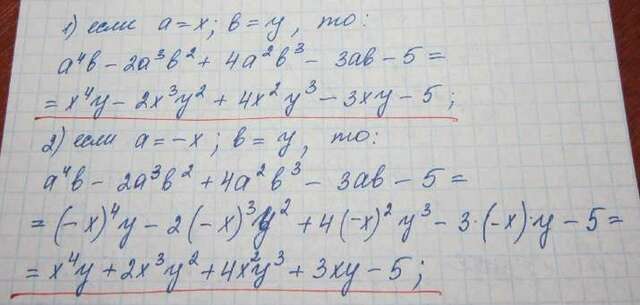 1) если a = x; в = y, то:
a⁴в – 2a³в² + 4a²в³ – 3aв – 5 =
= x⁴y – 2x³y² + 4x²y³ – 3xy – 5;
2) если a = –x; в = y, то:
a⁴в – 2a³в² + 4a²в³ – 3aв – 5 =
= (–x)⁴y – 2(–x)³y² + 4(–x)²y³ – 3·(–x)·y – 5 =
= x⁴y + 2x³y² + 4x²y³ + 3xy – 5;